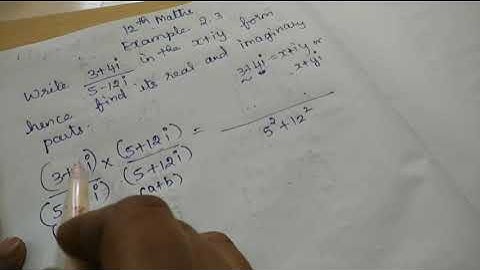 12th Maths
Example 2.3
Write 3+4i / 5-12i in the x+iy form
hence find its real and imaginary
parts.
3+4i = x+iy or
x+yi
(3+4i) / (5 i) × (5+12i) / (5+12i) = / 5²+12²
(a+b)